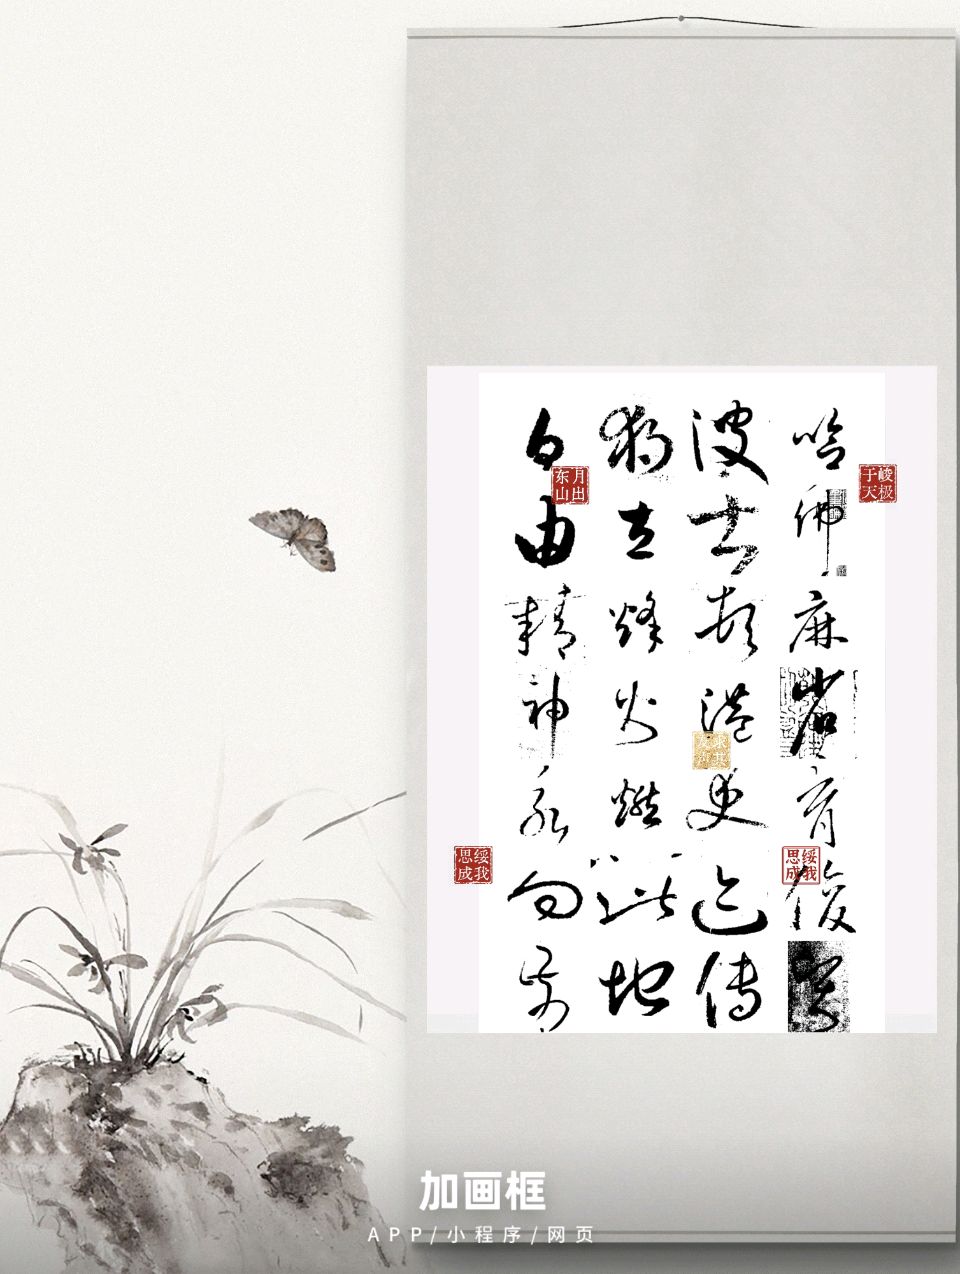 哈佛麻省育俊
波士顿港传
独立烽火燃此地
自由精神永向
峻极于天
月出东山
绥我思成
绥我思成
加画框
APP/小程序/网页